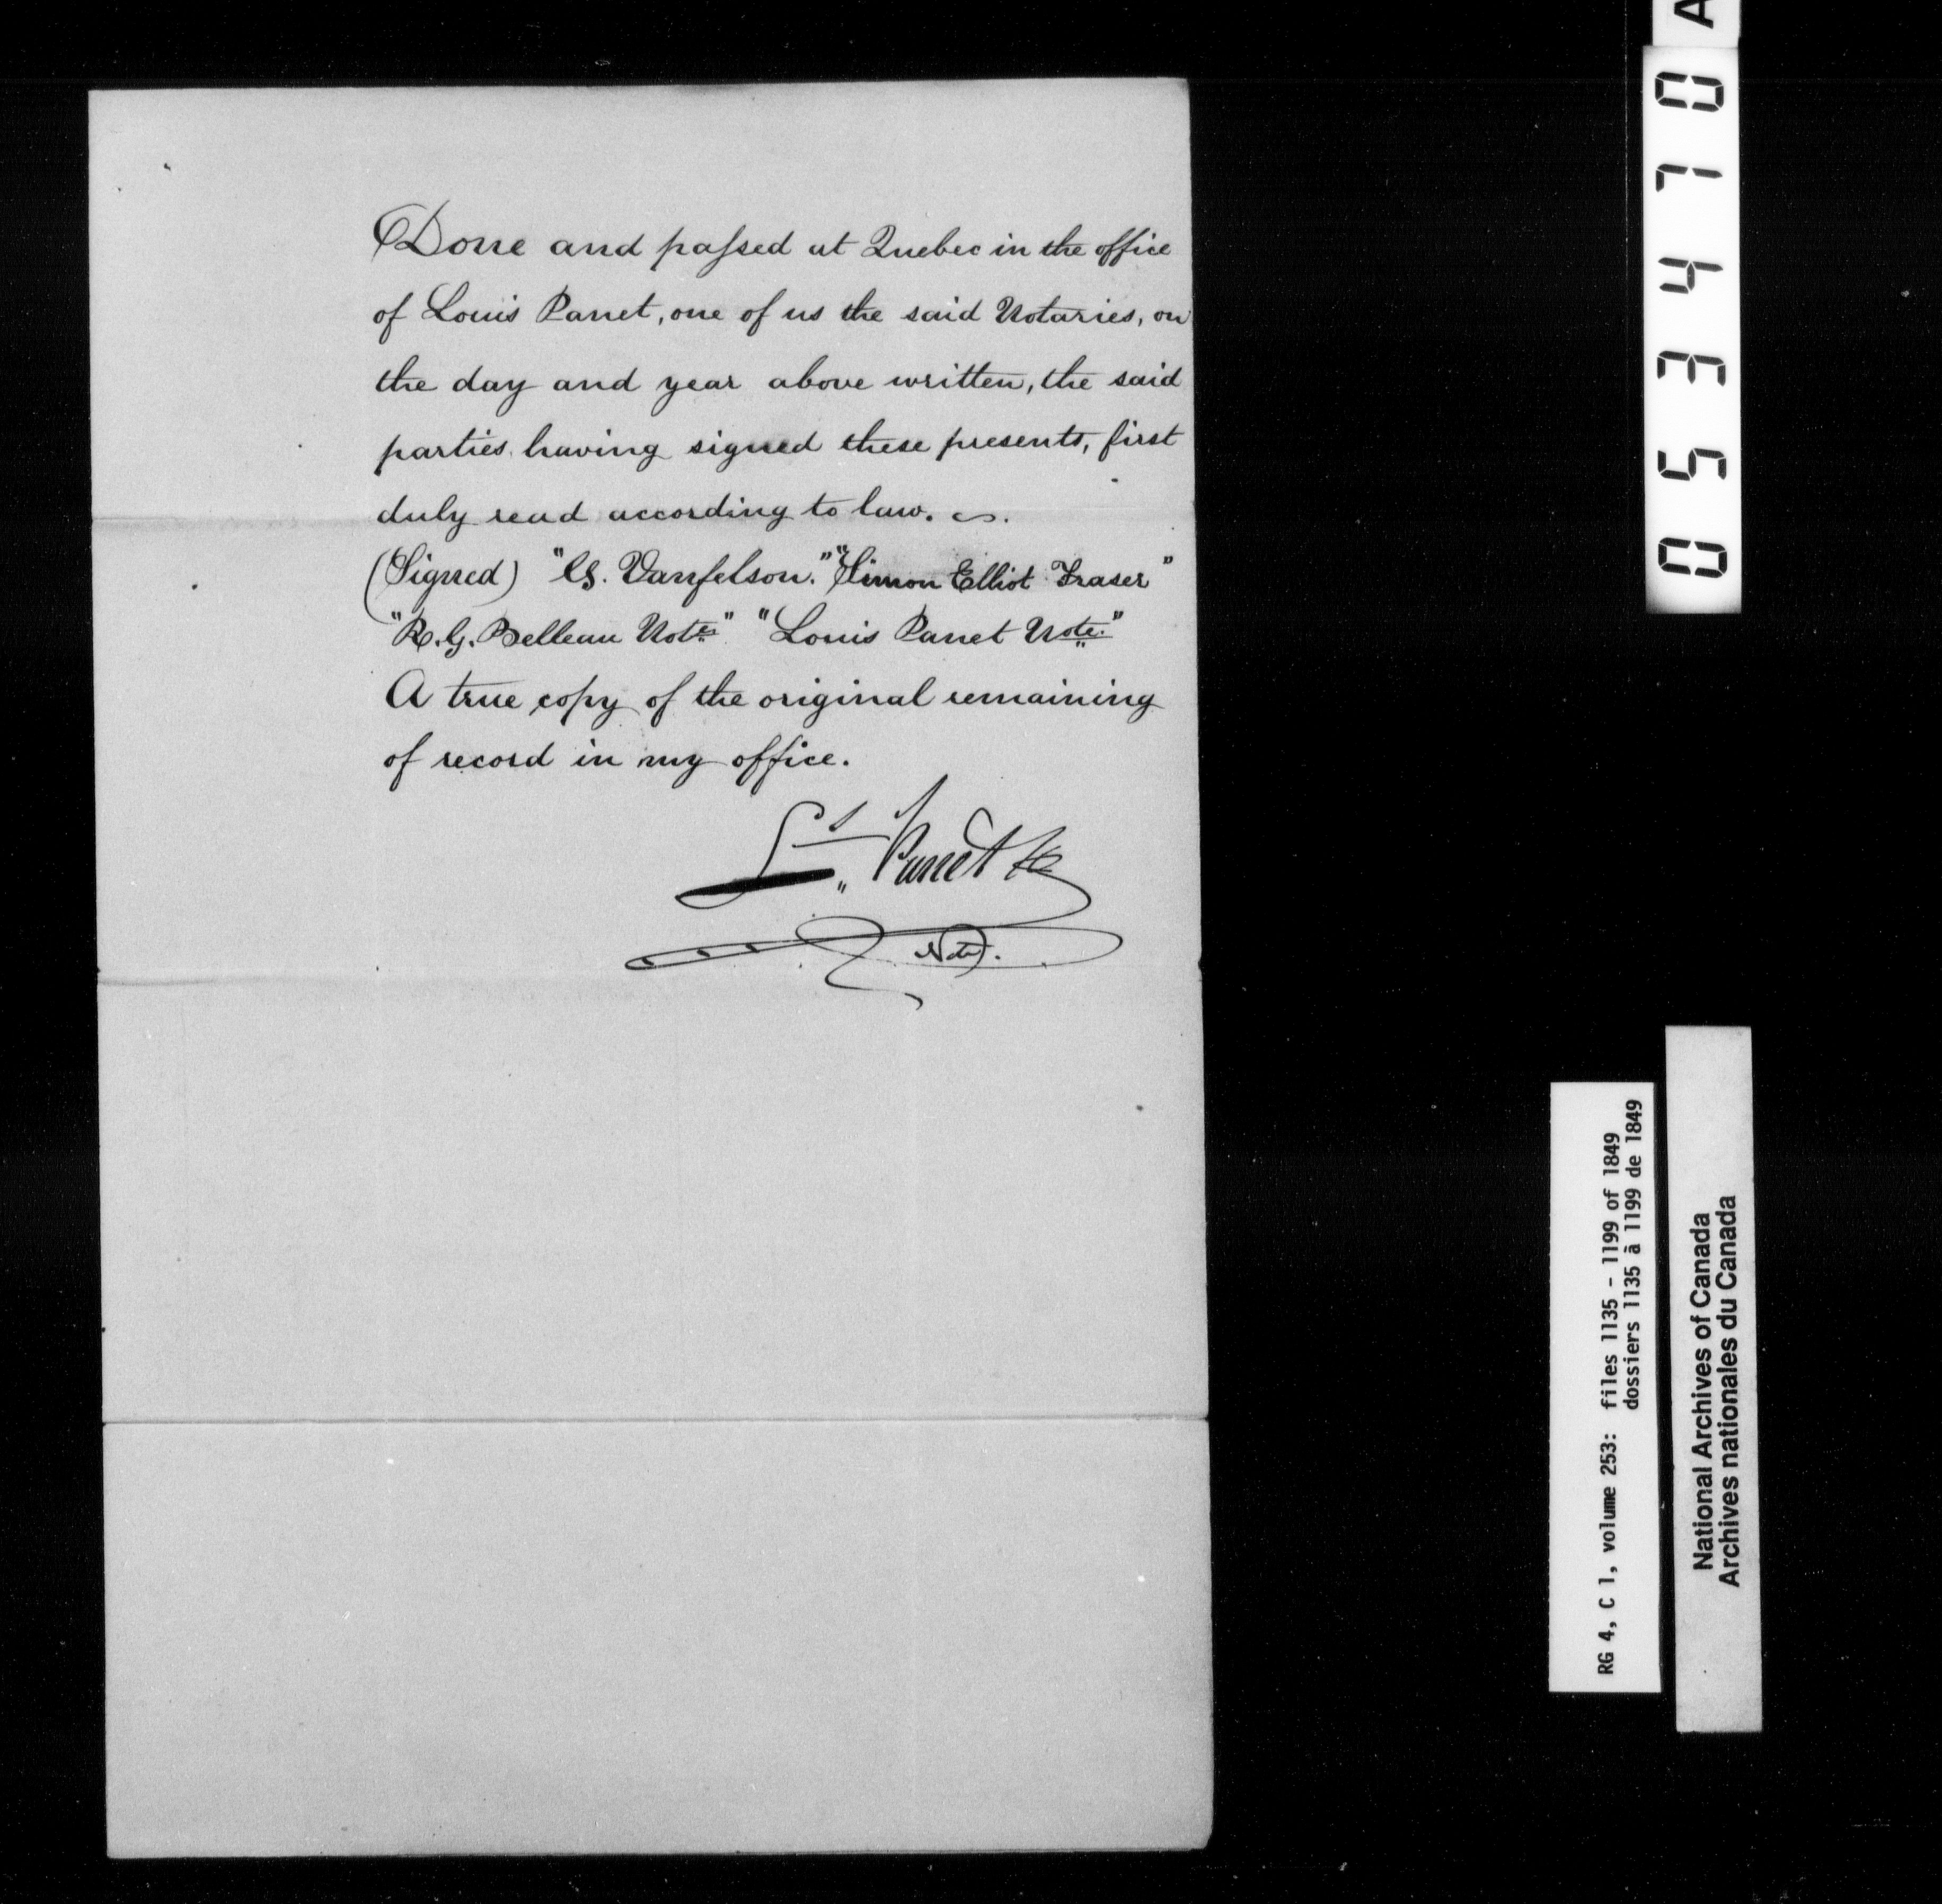 Done and passed at Quebec in the office
of Louis Panet, one of us the said Notaries, on
the day and year above written, the said
parties having signed these presents, first
duly read according to law.
(Signed) "G. Vanfelson." "Simon Elliot Fraser"
"R. G. Belleau Not." "Louis Panet Note."
A true copy of the original remaining
of record in my office.
Ls Panet
Not.
053470
A
RG 4, C 1, volume 253: files 1135 - 1199 of 1849
dossiers 1135 à 1199 de 1849
National Archives of Canada
Archives nationales du Canada